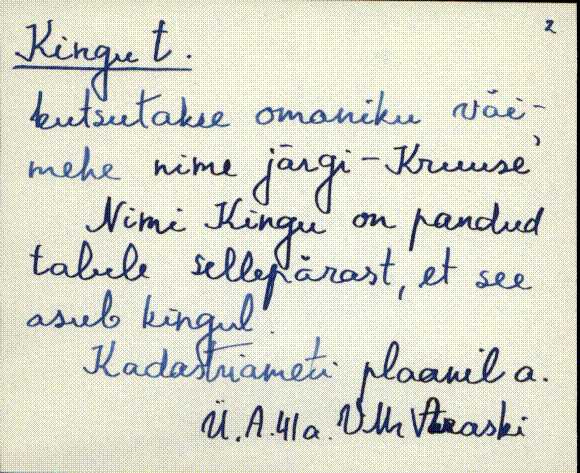 2
Kingu t.
kutsutakse omaniku väi-
mehe nime järgi - Kruuse'
Nimi Kingu on pandud
talule sellepärast, et see
asub kingul.
Kadastriameti plaanil a.
Ü.A.41a. Vlk